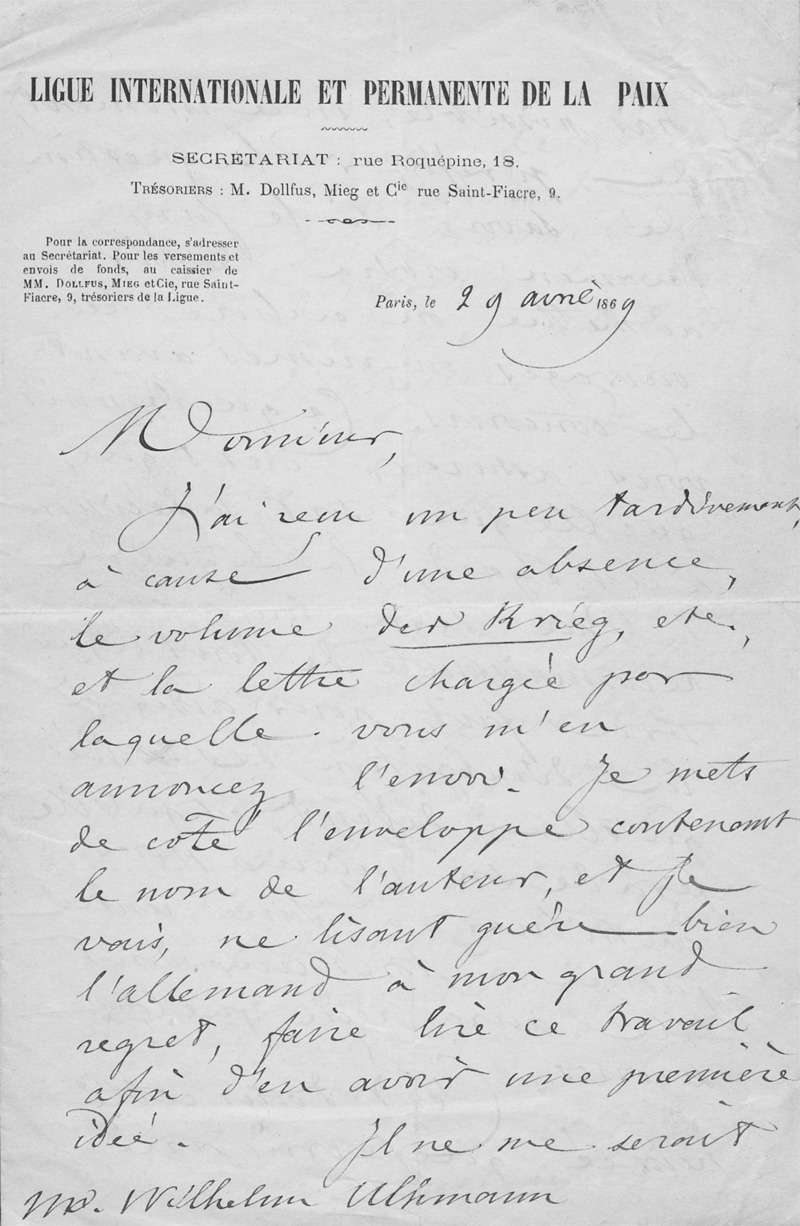 LIGUE INTERNATIONALE ET PERMANENTE DE LA PAIX
SECRETARIAT : rue Roquépine, 18.
TRÉSORIERS : M. Dollfus, Mieg et Cie rue Saint-Fiacre, 9.
Pour la correspondance, s'adresser
au Secrétariat. Pour les versements et
envois de fonds, au caissier de
MM. DOLLFUS, MIEG et Cie, rue Saint-
Fiacre, 9, trésoriers de la Ligue.
Paris, le 29 avril 1869
Monsieur,
J'ai reçu un peu tardivement,
à cause d'une absence,
le volume der Krieg, etc.,
et la lettre chargée par
laquelle vous m'en
annoncez l'envoi. Je mets
de coté l'enveloppe contenant
le nom de l'auteur, et je
vais, ne lisant guère bien
l'allemand à mon grand
regret, faire lire ce travail
afin d'en avoir une première
idée. Il ne me serait
Mr. Wilhelm